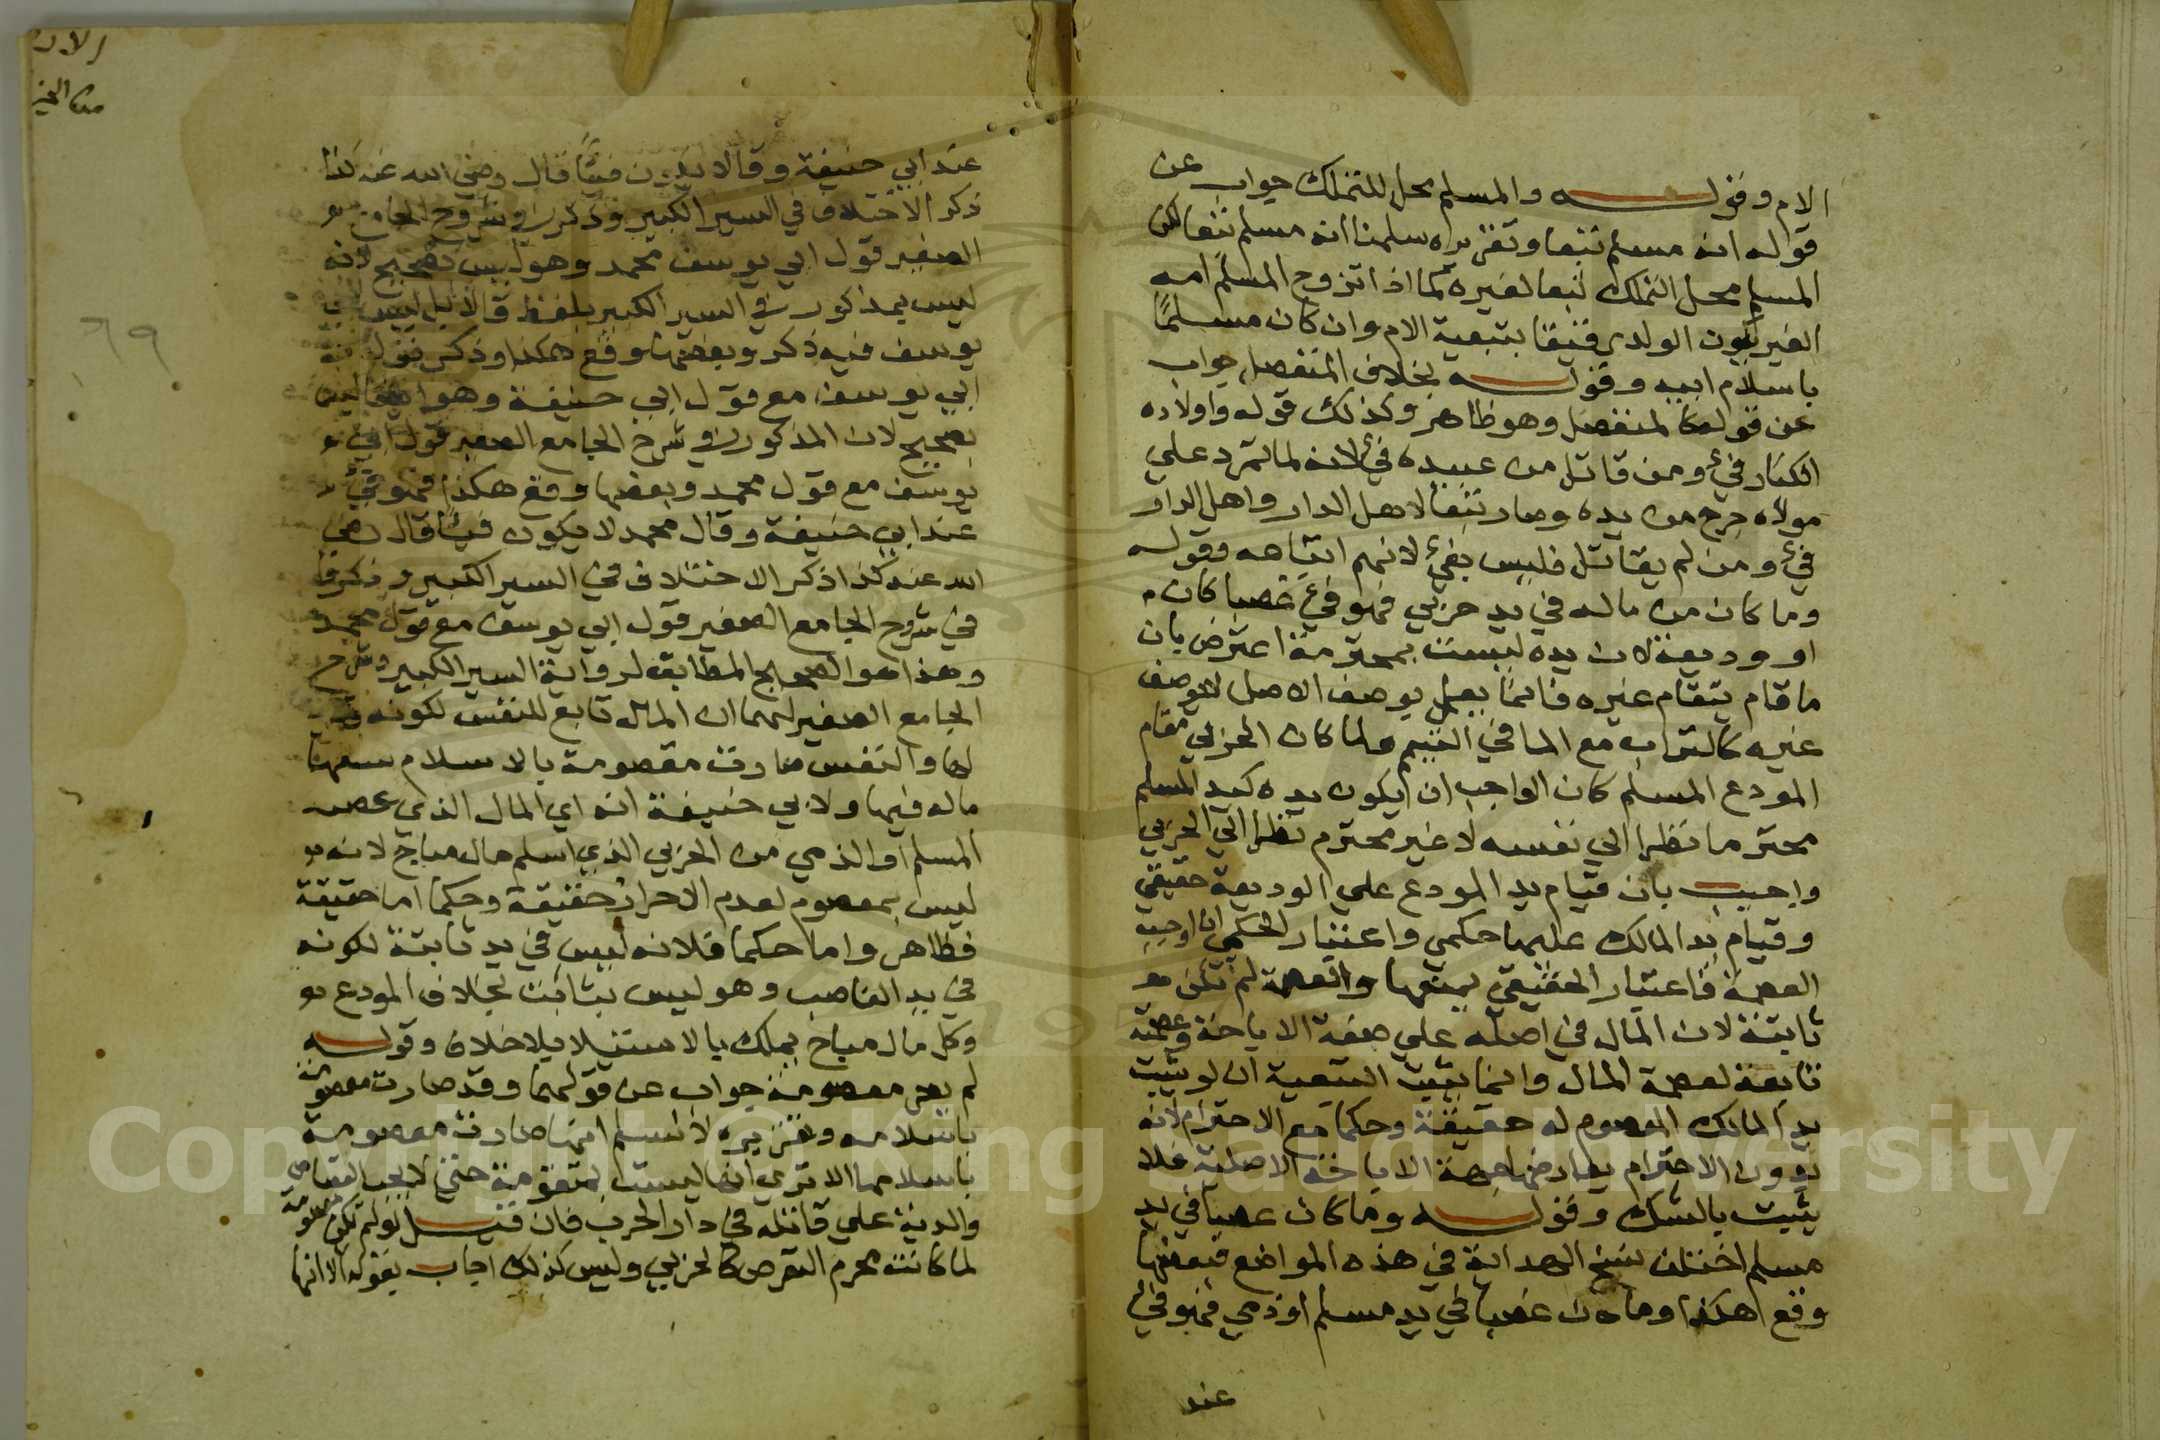 الام وقوله والمسلم محل للتملك جواب عن
قوله انه مسلم تبعا وتقريره سلمنا انه مسلم تبعا لكن
المسلم محل التملك تبعا لغيره كما اذا تزوج المسلم امه
الغير يكون الولد رقيقا بتبعية الام وان كان مسلمًا
باسلام ابيه وقوله بخلاف المنفصل جواب
عن قوله كالمنفصل وهو ظاهر وكذلك قوله واولاده
الكبار فيء ومن قاتل من عبيده فيء لانه لما تمرد علي
مولاه خرج من يده وصار تبعا لاهل الدار واهل الدار
فيء ومن لم يقاتل فليس بفيء لانهم اتباعه وقوله
وما كان من ماله في يد حربي فهو فيء غصبا كان
او وديعة لان يده ليست بمحترمة اعترض بان
ما قام مقام غيره فانما يعمل بوصف الاصل لا بوصف
غيره كالتراب مع الما في التيمم ولما كان الحربي مقام
المودع المسلم كان الواجب ان يكون يده كيد المسلم
محترما نظرا الي نفسه لا غير محترم نظرا الي الحربي
واجيب بان قيام يد المودع علي الوديعة حقيقي
وقيام يد المالك عليها حكمي واعتبار الحكمي ان اوجب
العصمة فاعتبار الحقيقي يمنعها والعصمة لم تكن
ثابتة لان المال في اصله علي صفة الاباحة وعصمته
تابعة لعصمة المال وانما يثبت التبعية ان لو ثبت
يد المالك المعصوم له حقيقة وحكما مع الاحترام لانه
بدون الاحترام يعارضها جهة الاباحة الاصلية فلا
يثبت بالشك وقوله وما كان غصبا في يد
مسلم اختلف نسخ الهداية في هذه المواضع فبعضها
وقع هكذا وما كان غصبا في يد مسلم او ذمي فهو فيء
عند
عند ابي حنيفة وقالا لا يكون فيئًا قال رضي الله عنه كذا
ذكر الاختلاف في السير الكبير وذكر في شروح الجامع
الصغير قول ابي يوسف محمد وهو ليس بصحيح لانه
ليس بمذكور في السير الكبير بلفظ قالا بل ليس لابي
يوسف فيه ذكر وبعضها وقع هكذا وذكر قول
ابي يوسف مع قول ابي حنيفة وهو ايضا ليس
بصحيح لان المذكور في شرح الجامع الصغير قول ابي
يوسف مع قول محمد وبعضها وقع هكذا فهو فيء
عند ابي حنيفة وقال محمد لا يكون فيئًا قال رضي
الله عنه كذا ذكر الاختلاف في السير الكبير وذكر
في شروح الجامع الصغير قول ابي يوسف مع قول محمد
وهذا هو الصحيح المطابق لرواية السير الكبير وشرح
الجامع الصغير لهما ان المال تابع للنفس لكونه
لها والنفس صارت معصومة بالاسلام سعها
ماله فيها ولابي حنيفة انه اي المال الذي غصب
المسلم او الذمي من الحربي الذي اسلم مال مباح لانه
ليس بمعصوم لعدم الاحراز حقيقة وحكما اما حقيقة
فظاهر واما حكما فلانه ليس في يد ثابتة لكونه
في يد الغاصب وهو ليس بثابت بخلاف المودع
وكل مال مباح يملك بالاستيلا بلا خلاف وقوله
لم يصر معصومة جواب عن قولهما وقد صارت معصومة
باسلامه وتقريره لا نسلم انها صارت معصومة
باسلامها الا تري انها ليست بمتقومة حتي لا يجب القصاص
والدية علي قاتله في دار الحرب فان قيل لو لم تكن معصومة
لما كانت محرم التعرض كالحربي وليس كذلك اجاب بقوله الا انها
٦٩